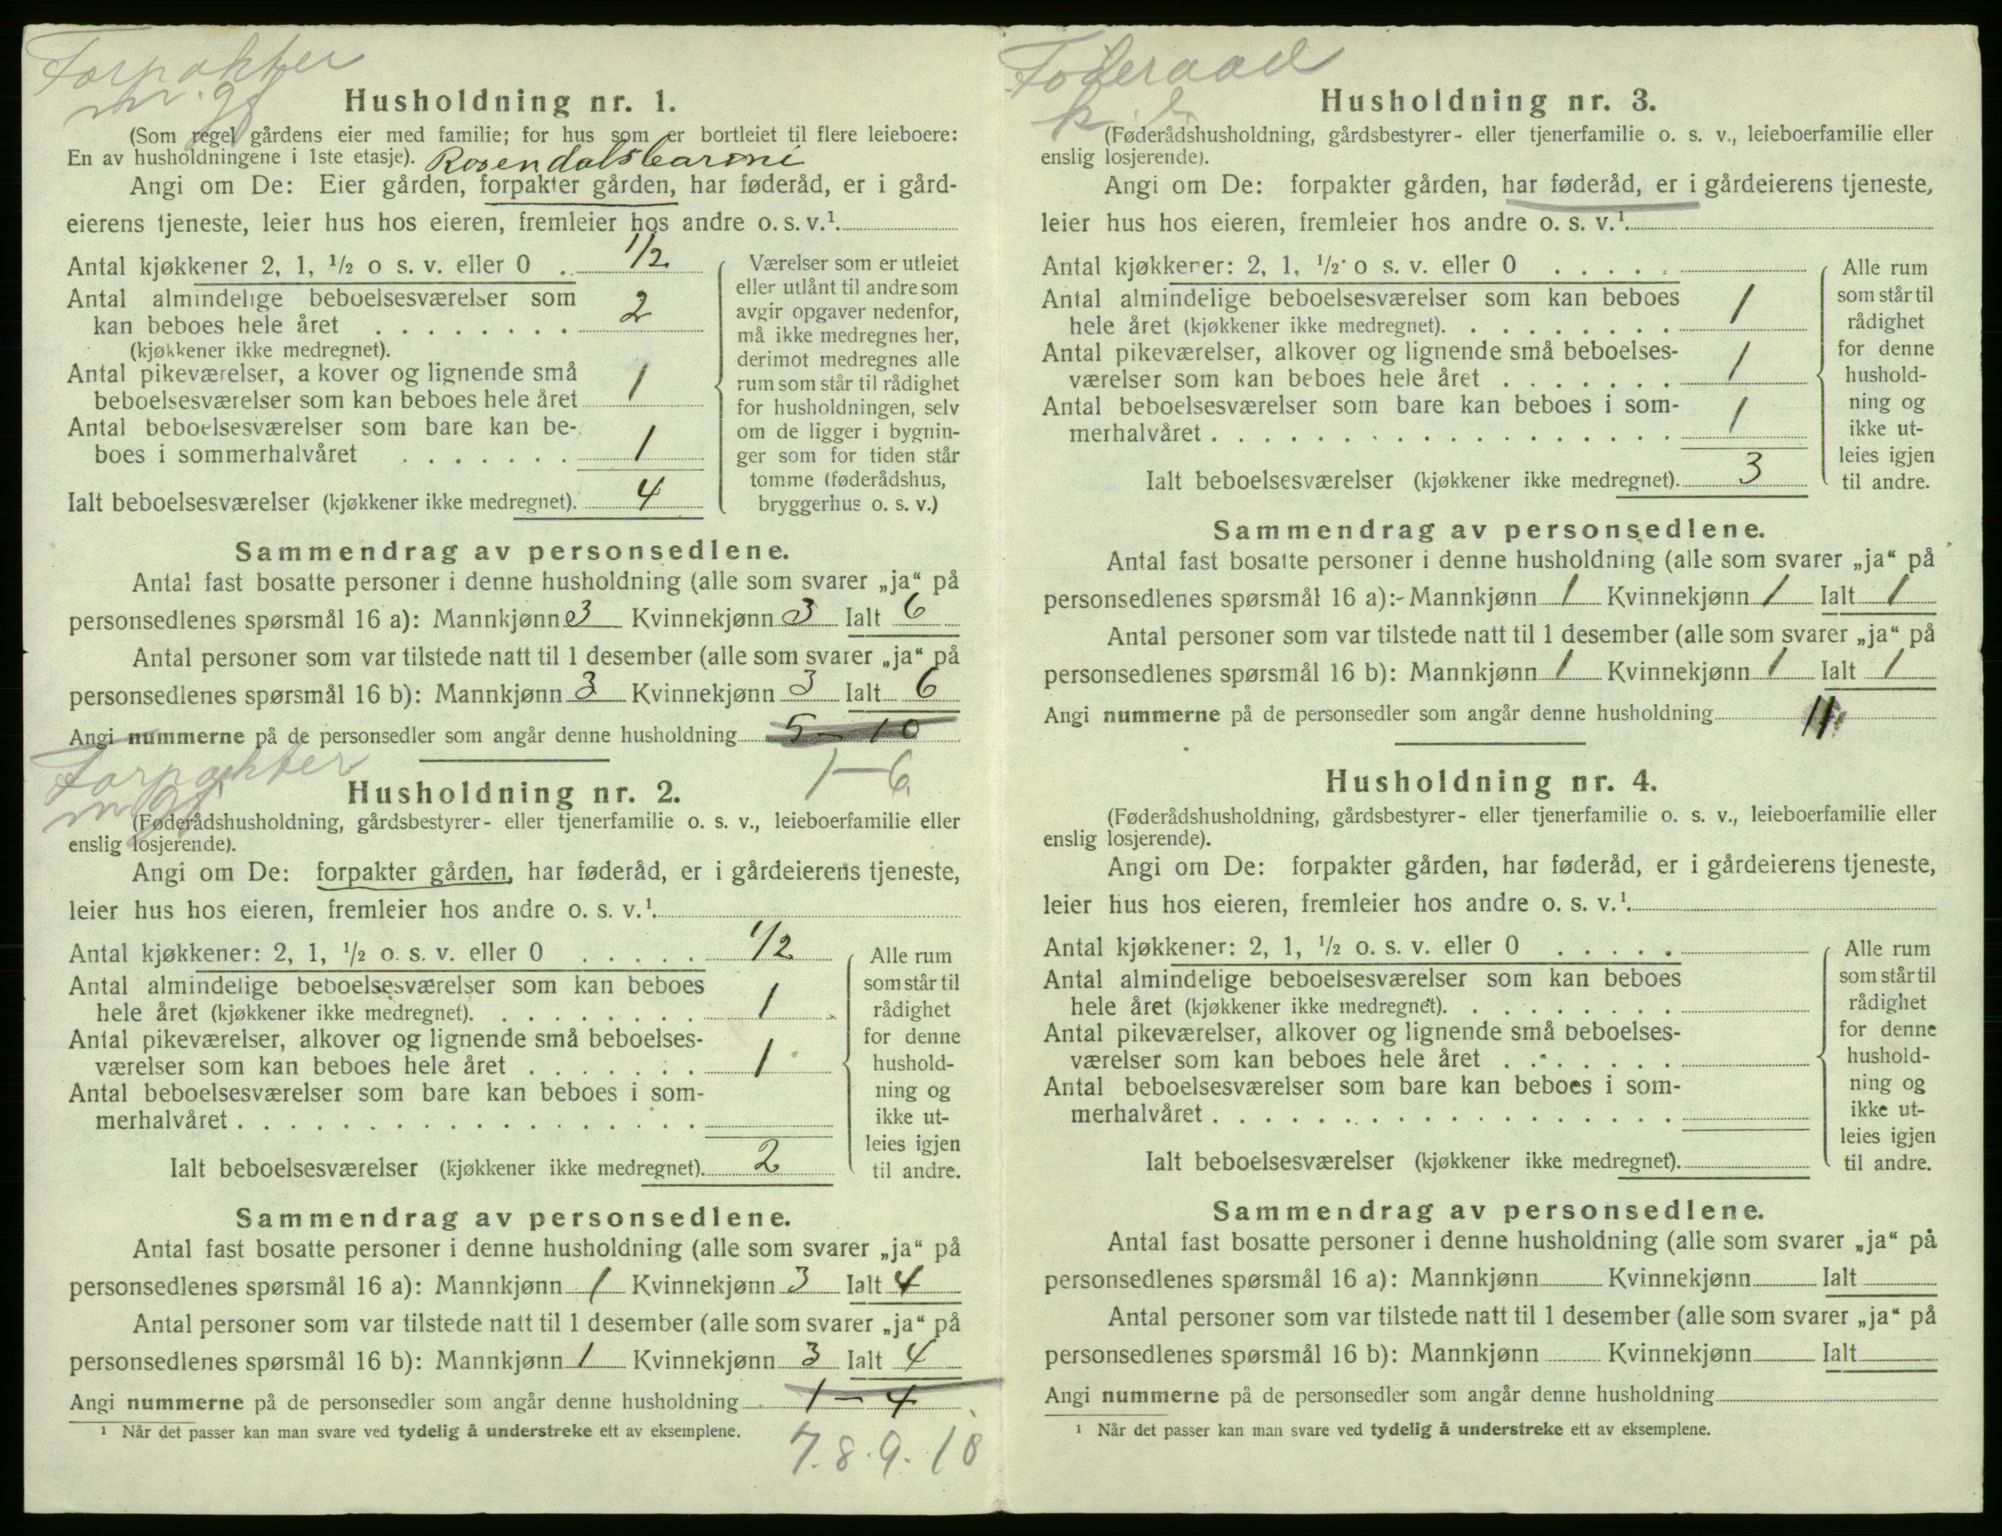 Forpakter
m. gf
Husholdning nr. 1.
(Som regel gårdens eier med familie; for hus som er bortleiet til flere leieboere:
En av husholdningene i 1ste etasje). Rosendalsbaroni
Angi om De: Eier gården, forpakter gården, har føderåd, er i gård-
eierens tjeneste, leier hus hos eieren, fremleier hos andre o. s. v.¹
Antal kjøkkener 2, 1, ½ o s. v. eller 0 . ½
Antal almindelige beboelsesværelser som
kan beboes hele året . . . . . . . . 2
(kjøkkener ikke medregnet).
Antal pikeværelser, a kover og lignende små
beboelsesværelser som kan beboes hele året 1
Antal beboelsesværelser som bare kan be-
boes i sommerhalvåret . . . . . . . 1
Ialt beboelsesværelser (kjøkkener ikke medregnet). 4
Værelser som er utleiet
eller utlånt til andre som
avgir opgaver nedenfor,
må ikke medregnes her,
derimot medregnes alle
rum som står til rådighet
for husholdningen, selv
om de ligger i bygnin-
ger som for tiden står
tomme (føderådshus,
bryggerhus o. s. v.)
Sammendrag av personsedlene.
Antal fast bosatte personer i denne husholdning (alle som svarer „ja“ på
personsedlenes spørsmål 16 a): Mannkjønn 3 Kvinnekjønn 3 Ialt 6
Antal personer som var tilstede natt til 1 desember (alle som svarer „ja“ på
personsedlenes spørsmål 16 b): Mannkjønn 3 Kvinnekjønn 3 Ialt 6
Angi nummerne på de personsedler som angår denne husholdning 5 - 10
1 - 6
Forpakter
m gf
Husholdning nr. 2.
(Føderådshusholdning, gårdsbestyrer- eller tjenerfamilie o. s. v., leieboerfamilie eller
enslig losjerende).
Angi om De: forpakter gården, har føderåd, er i gårdeierens tjeneste,
leier hus hos eieren, fremleier hos andre o. s. v.¹
Antal kjøkkener: 2, 1, ½ o. s. v. eller 0 . . . . . ½
Antal almindelige beboelsesværelser som kan beboes
hele året (kjøkkener ikke medregnet). . . . . . . . . 1
Antal pikeværelser, alkover og lignende små beboelses-
værelser som kan beboes hele året . . . . . . . 1
Antal beboelsesværelser som bare kan beboes i som-
merhalvåret . . . . . . . . . . . . . . . . . .
Ialt beboelsesværelser (kjøkkener ikke medregnet). 2
Alle rum
som står til
rådighet
for denne
hushold-
ning og
ikke ut-
leies igjen
til andre.
Sammendrag av personsedlene.
Antal fast bosatte personer i denne husholdning (alle som svarer „ja“ på
personsedlenes spørsmål 16 a): Mannkjønn 1 Kvinnekjønn 3 Ialt 4
Antal personer som var tilstede natt til 1 desember (alle som svarer „ja“ på
personsedlenes spørsmål 16 b): Mannkjønn 1 Kvinnekjønn 3 Ialt 4
Angi nummerne på de personsedler som angår denne husholdning 1 - 4
¹ Når det passer kan man svare ved tydelig å understreke ett av eksemplene.
7. 8. 9. 10
Føderaad
Husholdning nr. 3.
(Føderådshusholdning, gårdsbestyrer- eller tjenerfamilie o. s. v., leieboerfamilie eller
enslig losjerende).
Angi om De: forpakter gården, har føderåd, er i gårdeierens tjeneste,
leier hus hos eieren, fremleier hos andre o. s. v.¹
Antal kjøkkener: 2, 1, ½ o s. v. eller 0 . . . . .
Antal almindelige beboelsesværelser som kan beboes
hele året (kjøkkener ikke medregnet). . . . . . . . . 1
Antal pikeværelser, alkover og lignende små beboelses-
værelser som kan beboes hele året . . . . . . . 1
Antal beboelsesværelser som bare kan beboes i som-
merhalvåret . . . . . . . . . . . . . . . . . . 1
Ialt beboelsesværelser (kjøkkener ikke medregnet). 3
Alle rum
som står til
rådighet
for denne
hushold-
ning og
ikke ut-
leies igjen
til andre.
Sammendrag av personsedlene.
Antal fast bosatte personer i denne husholdning (alle som svarer „ja“ på
personsedlenes spørsmål 16 a): Mannkjønn 1 Kvinnekjønn 1 Ialt 1
Antal personer som var tilstede natt til 1 desember (alle som svarer „ja“ på
personsedlenes spørsmål 16 b): Mannkjønn 1 Kvinnekjønn 1 Ialt 1
Angi nummerne på de personsedler som angår denne husholdning 11
Husholdning nr. 4.
(Føderådshusholdning, gårdsbestyrer- eller tjenerfamilie o. s. v., leieboerfamilie eller
enslig losjerende).
Angi om De: forpakter gården, har føderåd, er i gårdeierens tjeneste,
leier hus hos eieren, fremleier hos andre o. s. v.¹
Antal kjøkkener: 2, 1, ½ o. s. v. eller 0 . . . . .
Antal almindelige beboelsesværelser som kan beboes
hele året (kjøkkener ikke medregnet). . . . . . . . .
Antal pikeværelser, alkover og lignende små beboelses-
værelser som kan beboes hele året . . . . . . .
Antal beboelsesværelser som bare kan beboes i som-
merhalvåret . . . . . . . . . . . . . . . . . .
Ialt beboelsesværelser (kjøkkener ikke medregnet).
Alle rum
som står til
rådighet
for denne
hushold-
ning og
ikke ut-
leies igjen
til andre.
Sammendrag av personsedlene.
Antal fast bosatte personer i denne husholdning (alle som svarer „ja“ på
personsedlenes spørsmål 16 a): Mannkjønn Kvinnekjønn Ialt
Antal personer som var tilstede natt til 1 desember (alle som svarer „ja“ på
personsedlenes spørsmål 16 b): Mannkjønn Kvinnekjønn Ialt
Angi nummerne på de personsedler som angår denne husholdning
¹ Når det passer kan man svare ved tydelig å understreke ett av eksemplene.